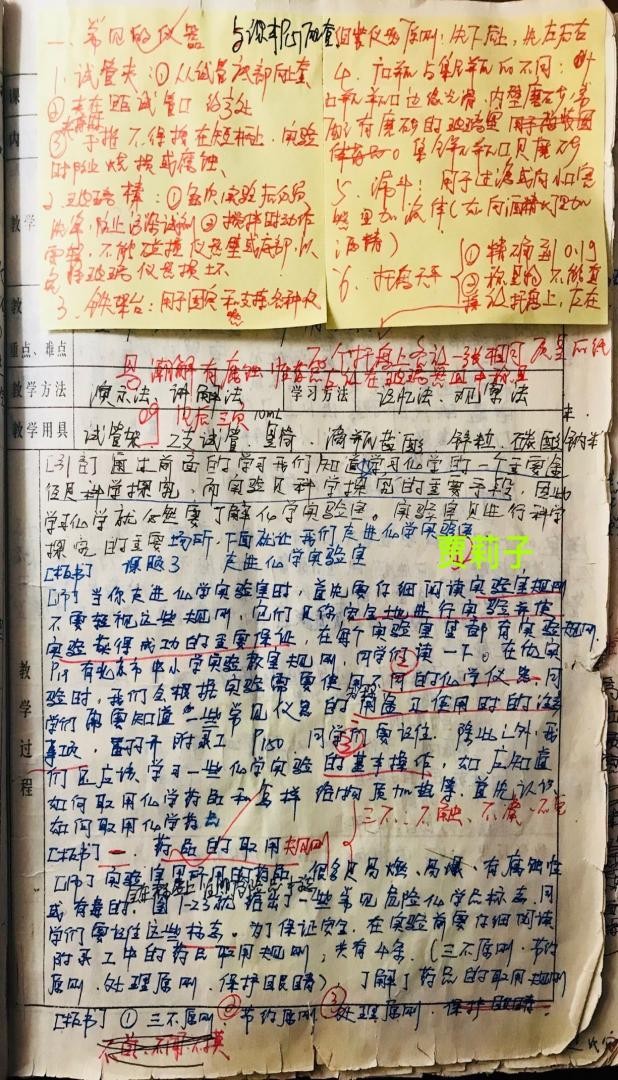 一、常见的仪器
与课本P151配套
组装仪器原则：先下后上，先左后右
1. 试管夹：①从试管底部向上套
②夹在距试管口 近处
③手握 不保持在短柄上，实验
时防止烧损或腐蚀、
2. 玻璃棒：①每次实验后必须
洗净，防止沾污试剂 ②搅拌时动作
要轻，不能碰撞仪器壁或底部，以
免将玻璃仪器损坏
3. 铁架台：用于固定和支持各种仪器
4. 广口瓶与集气瓶的不同：
口瓶瓶口边缘光滑，内壁磨砂，常
配有磨砂的玻璃塞
集气瓶瓶口是磨砂
5. 漏斗：用于过滤或向小口容
器里加液体（如向酒精灯里加
酒精）
6. 托盘天平
①精确到0.1g
②称量物不能直
接放托盘上，应在
两个托盘上各放一张相同质量的纸
易潮解有腐蚀性
放在玻璃器皿中称量
课
内
教学
教
重点、难点
教学方法
演示法、讲解法
学习方法
记忆法、观察法
教学用具
试管架 2支试管 量筒
10mL
滴瓶 盐酸 锌粒、碳酸钠
[引言] 通过前面的学习我们知道学习化学的一个重要途
径是科学探究，而实验是科学探究的重要手段，因此
学习化学就必然要了解化学实验室。实验室是进行科学
探究的重要场所，下面就让我们走进化学实验室
贾莉子
[板书] 课题3 走进化学实验室
[师] 当你走进化学实验室时，首先要仔细阅读实验室规则
不要轻视这些规则，它们是你安全地进行实验并使
实验获得成功的重要保证，在每个实验室里都有实验规则
同学们读一下。在做实
验时，我们会根据实验需要使用不同的化学仪器，同
学们需要知道一些常见仪器的用途和使用时的注意
事项，翻开附录I P150，同学们要记住。除此之外，我
们还应该学习一些化学实验的基本操作，如应知道
如何取用化学药品和怎样给物质加热等，首先认识
如何取用化学药品
三不：不触、不凑、不尝
[板书] 一、药品的取用规则
[师] 实验室里所用的药品，很多是易燃、易爆、有腐蚀性
或有毒的，图1-23就给出了一些常见危险化学品标志，同
学们要记住这些标志。为了保证安全，在实验前要仔细阅读
附录I中的药品取用规则，共有4条。（三不原则、节约
原则、处理原则、保护眼睛）、了解了药品的取用规则
[板书] ① 三不原则 ②节约原则 ③处理原则、保护眼睛
教
学
过
程